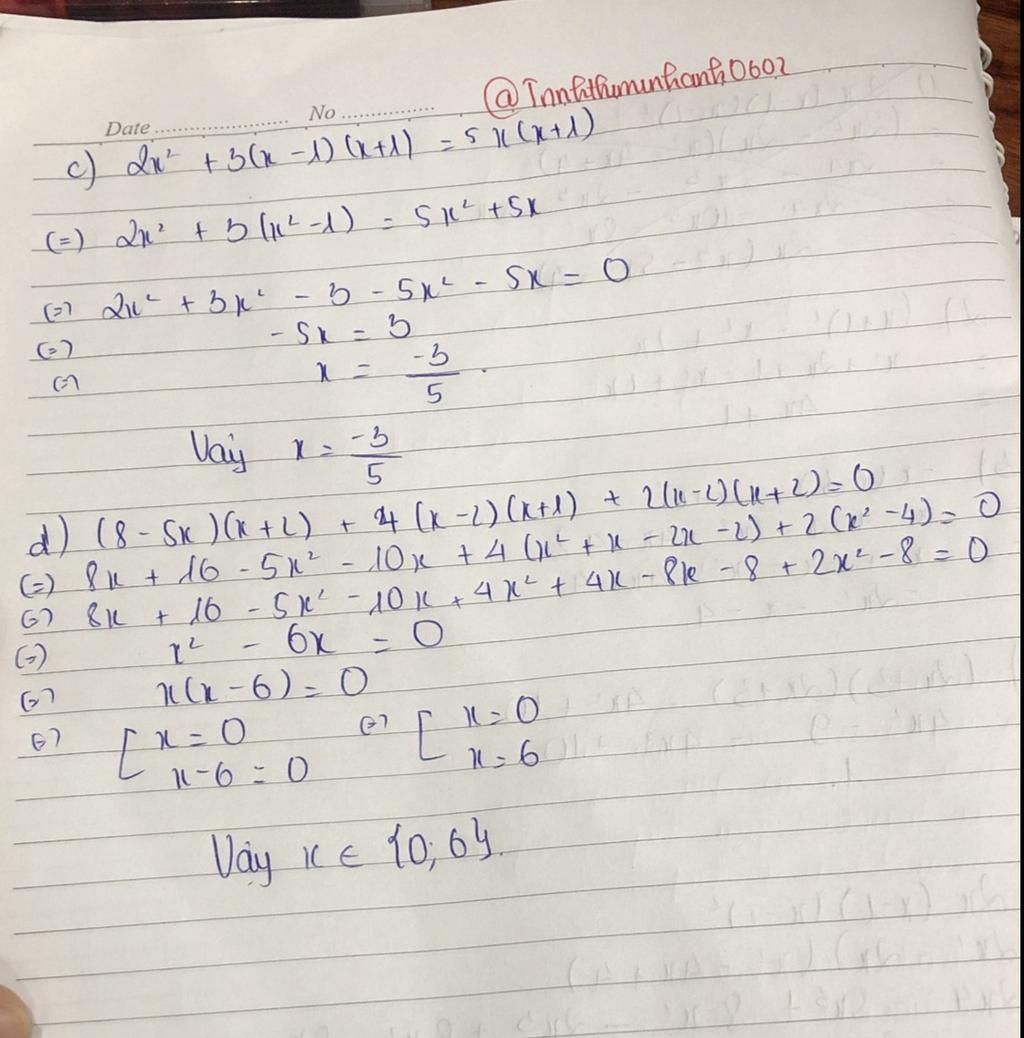 @Tranthiminhanh0602
Date ........................ No ................
c) 2x² + 3(x - 1)(x+1) = 5x(x+1)
(=) 2x² + 3(x² - 1) = 5x² + 5x
(=) 2x² + 3x² - 3 - 5x² - 5x = 0
(=) -5x = 3
(=) x = -3/5.
Vậy x = -3/5
d) (8 - 5x)(x + 2) + 4(x - 2)(x+1) + 2(x-2)(x+2) = 0
(=) 8x + 16 - 5x² - 10x + 4(x² + x - 2x - 2) + 2(x² - 4) = 0
(=) 8x + 16 - 5x² - 10x + 4x² + 4x - 8x - 8 + 2x² - 8 = 0
(=) x² - 6x = 0
(=) x(x - 6) = 0
(=) [ x = 0 (=) [ x = 0
x - 6 = 0 x = 6
Vậy x ∈ {0; 6}.